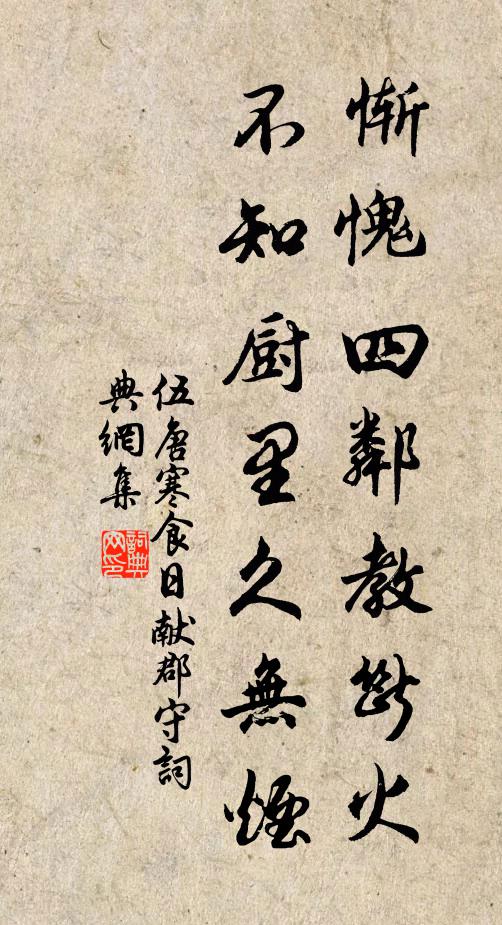 慚愧四鄰教斷火
不知厨里久無煙
伍唐寒食日献郡守詞
典網集
詞典网印